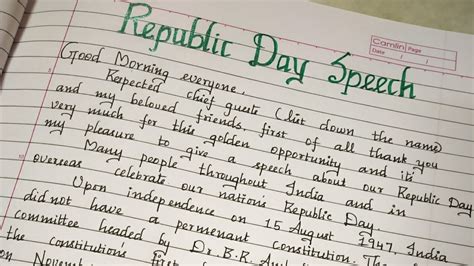 Republic Day Speech
Camlin Page
Date / /
Good Morning everyone,
Respected chief guests (list down the name)
and my beloved friends, first of all thank you
very much for this golden opportunity and its
my pleasure to give a speech about our Republic Day
Many people throughout India and in
overseas celebrate our nation's Republic Day.
Upon independence on 15 August 1947, India
did not have a permenant constitution. The
committee headed by Dr. B.R.
the constitution's first
on November